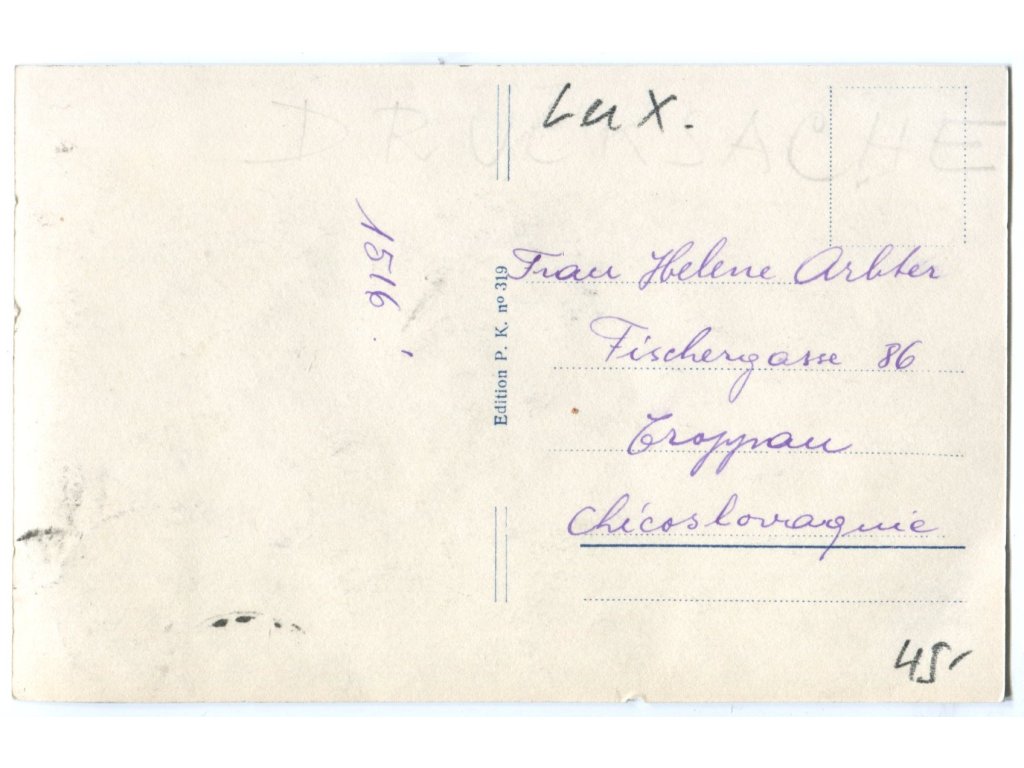 DRUCKSACHE
Lux.
1516
Edition P. K. nº 319
Frau Helene Arbter
Fischergasse 86
Troppau
Chécoslovaquie
45,-